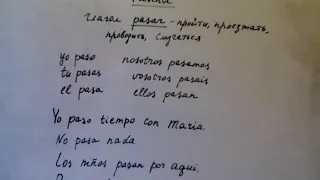 глагол pasar - пройти, проезжать,
проводить, случаться
yo paso nosotros pasamos
tu pasas vosotros pasáis
el pasa ellos pasan
Yo paso tiempo con María
No pasa nada
Los niños pasan por aquí.